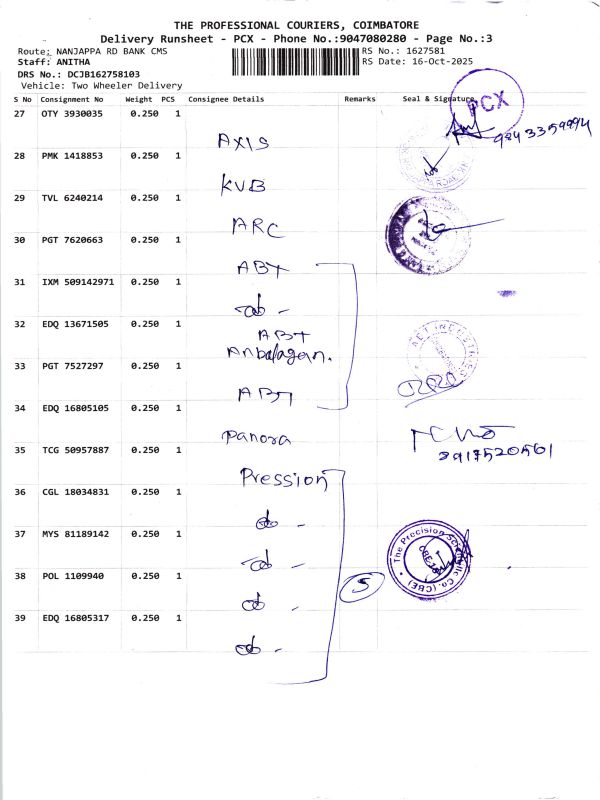 THE PROFESSIONAL COURIERS, COIMBATORE
Delivery Runsheet - PCX - Phone No.:9047080280 - Page No.:3
Route: NANJAPPA RD BANK CMS
RS No.: 1627581
Staff: ANITHA
RS Date: 16-Oct-2025
DRS No.: DCJB162758103
Vehicle: Two Wheeler Delivery
S No Consignment No Weight PCS Consignee Details Remarks Seal & Signature
PCX
27 OTY 3930035 0.250 1
AXIS
9843359994
28 PMK 1418853 0.250 1
KVB
29 TVL 6240214 0.250 1
ARC
30 PGT 7620663 0.250 1
ABT
31 IXM 509142971 0.250 1
do -
32 EDQ 13671505 0.250 1
ABT
Anbalagan.
33 PGT 7527297 0.250 1
ABT
34 EDQ 16805105 0.250 1
Panora
35 TCG 50957887 0.250 1
Pression
36 CGL 18034831 0.250 1
do -
37 MYS 81189142 0.250 1
do -
38 POL 1109940 0.250 1
do -
5
The Precision Scientific Co. (CBE)
39 EDQ 16805317 0.250 1
do -